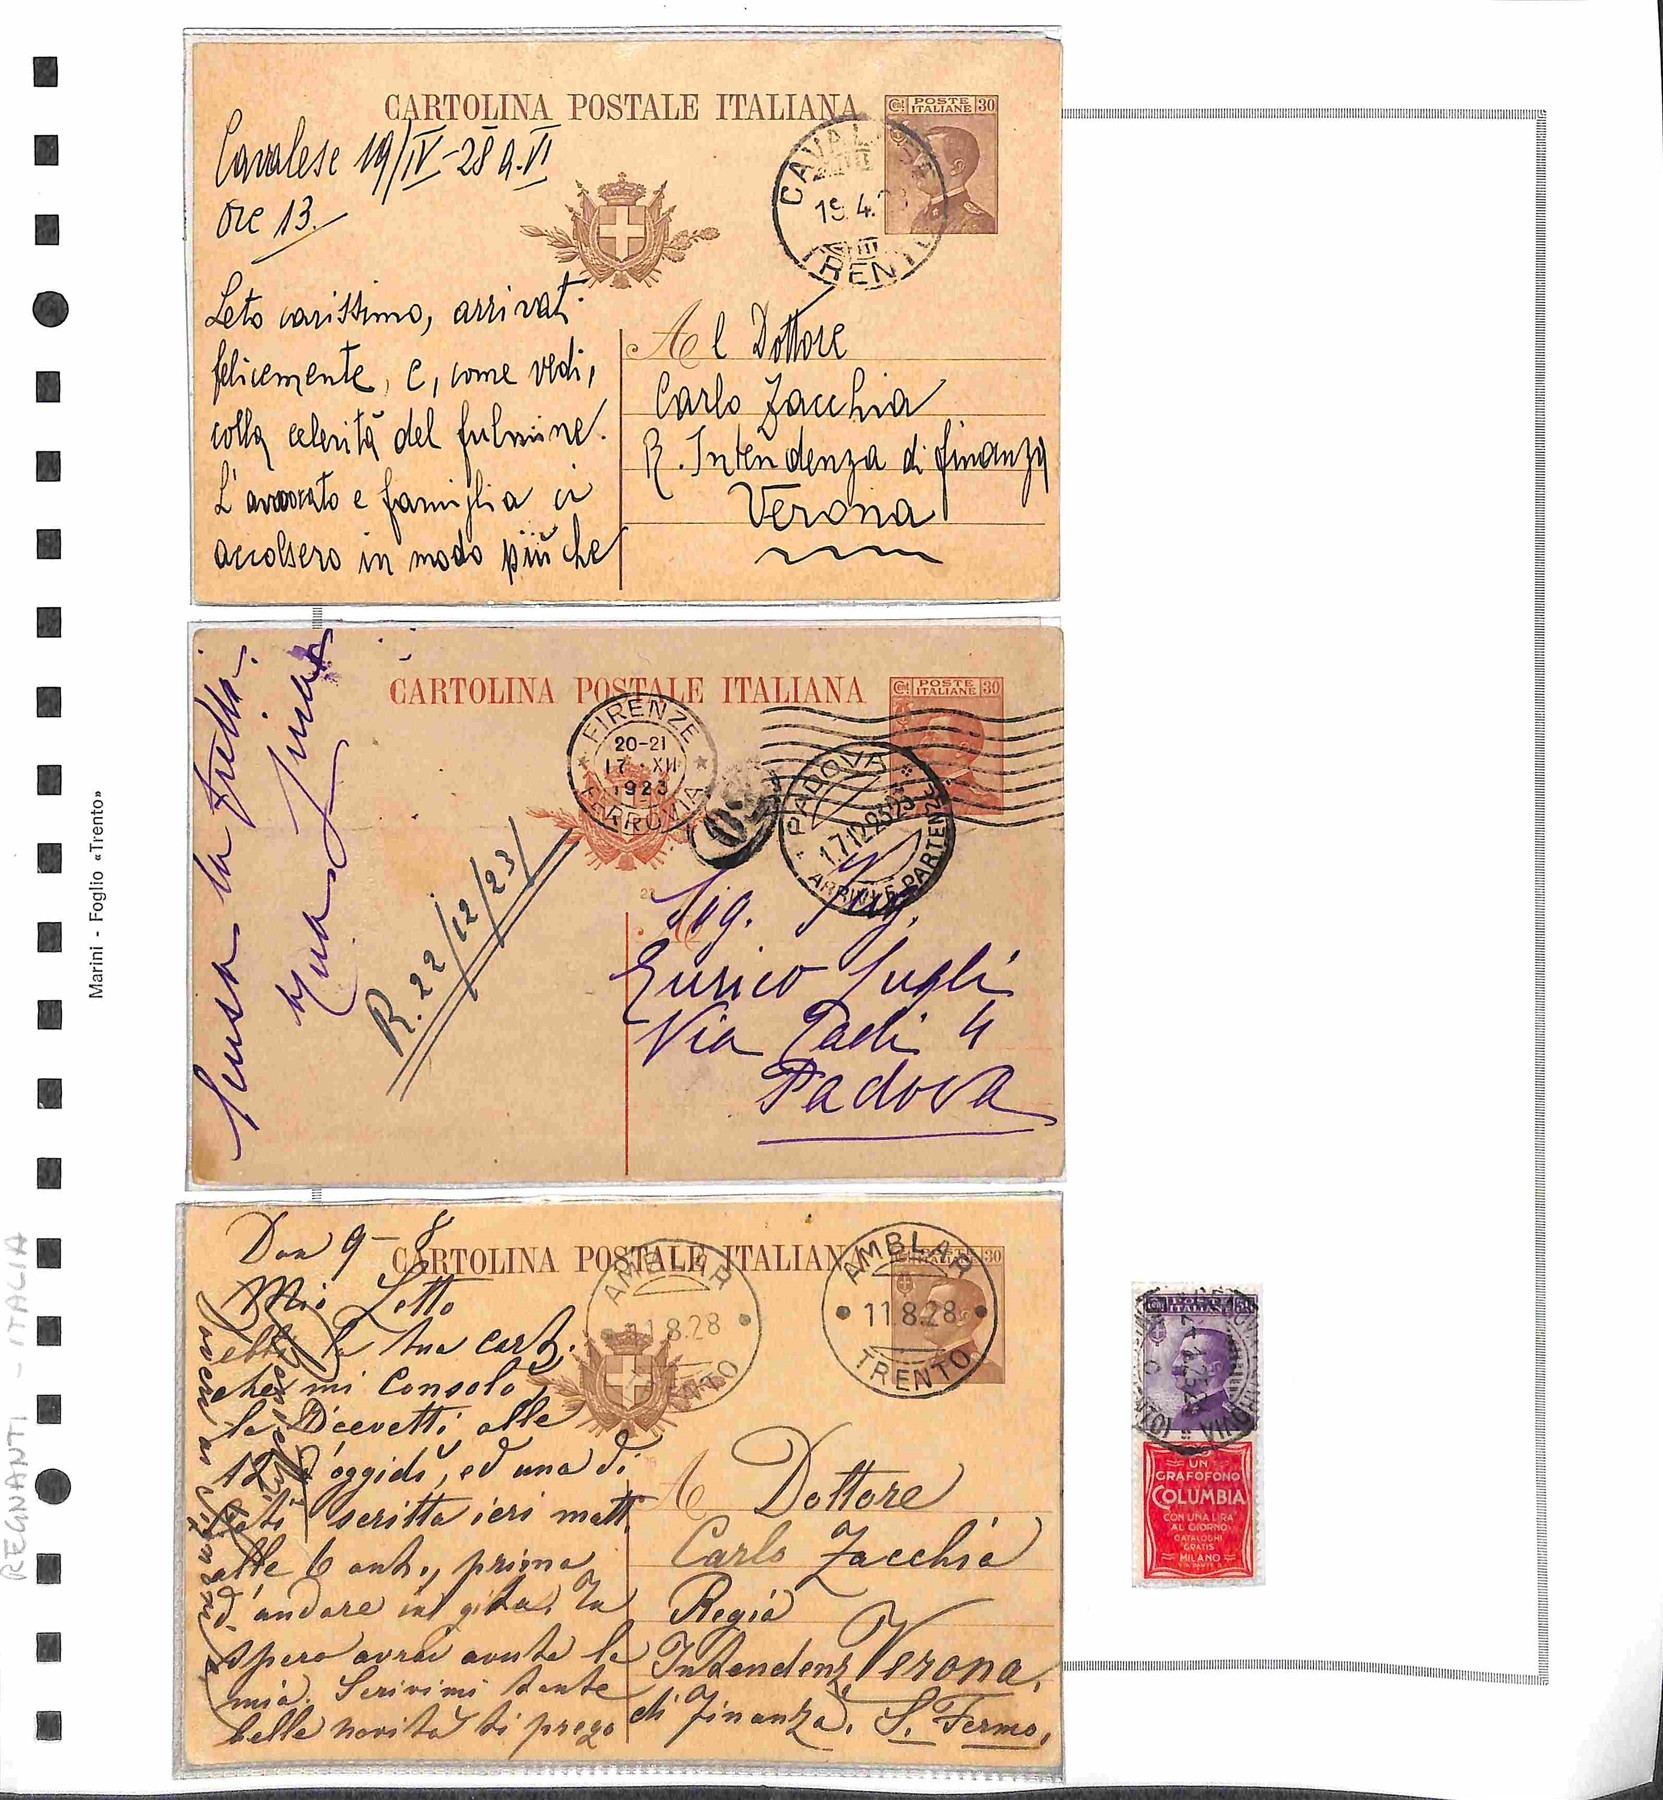 CARTOLINA POSTALE ITALIANA
POSTE ITALIANE 30
Cavalese 19/IV-28 a. VI
Ore 13.
CAVALESE
19.4.28
TRENTO
Leto carissimo, arrivati
felicemente, e, come vedi,
colla celerità del fulmine.
L'avvocato e famiglia ci
accolsero in modo più che
Al Dottore
Carlo Zacchia
R. Intendenza di finanza
Verona
CARTOLINA POSTALE ITALIANA
POSTE ITALIANE 30
FIRENZE
20-21
17 XII
1923
FERROVIA
PADOVA
17.12.23
ARRIVI E PARTENZE
Scusa la fretta.
R. 22/12/23
23
A Sig. Ing.
Enrico
Via 4
Padova
CARTOLINA POSTALE ITALIANA
30
AMBLAR
11.8.28
TRENTO
AMBLAR
11.8.28
TRENTO
Don 9-8
Mio Letto
ebbi la tua cart.
che mi consolò,
la ricevetti alle
12 d'oggidì, ed una di
scritta ieri matt.
alle 6 ant., prima
d'andare in gita. La
spero avrai avuta la
mia. Scrivimi tante
belle novità ti prego
A Dottore
Carlo Zacchia
Regia
Intendenz. Verona.
di Finanza. S. Fermo.
POSTE ITALIANE 50
UN
GRAFOFONO
COLUMBIA
CON UNA LIRA
AL GIORNO
CATALOGHI
GRATIS
MILANO
Marini - Foglio «Trento»
REGNANTI - ITALIA